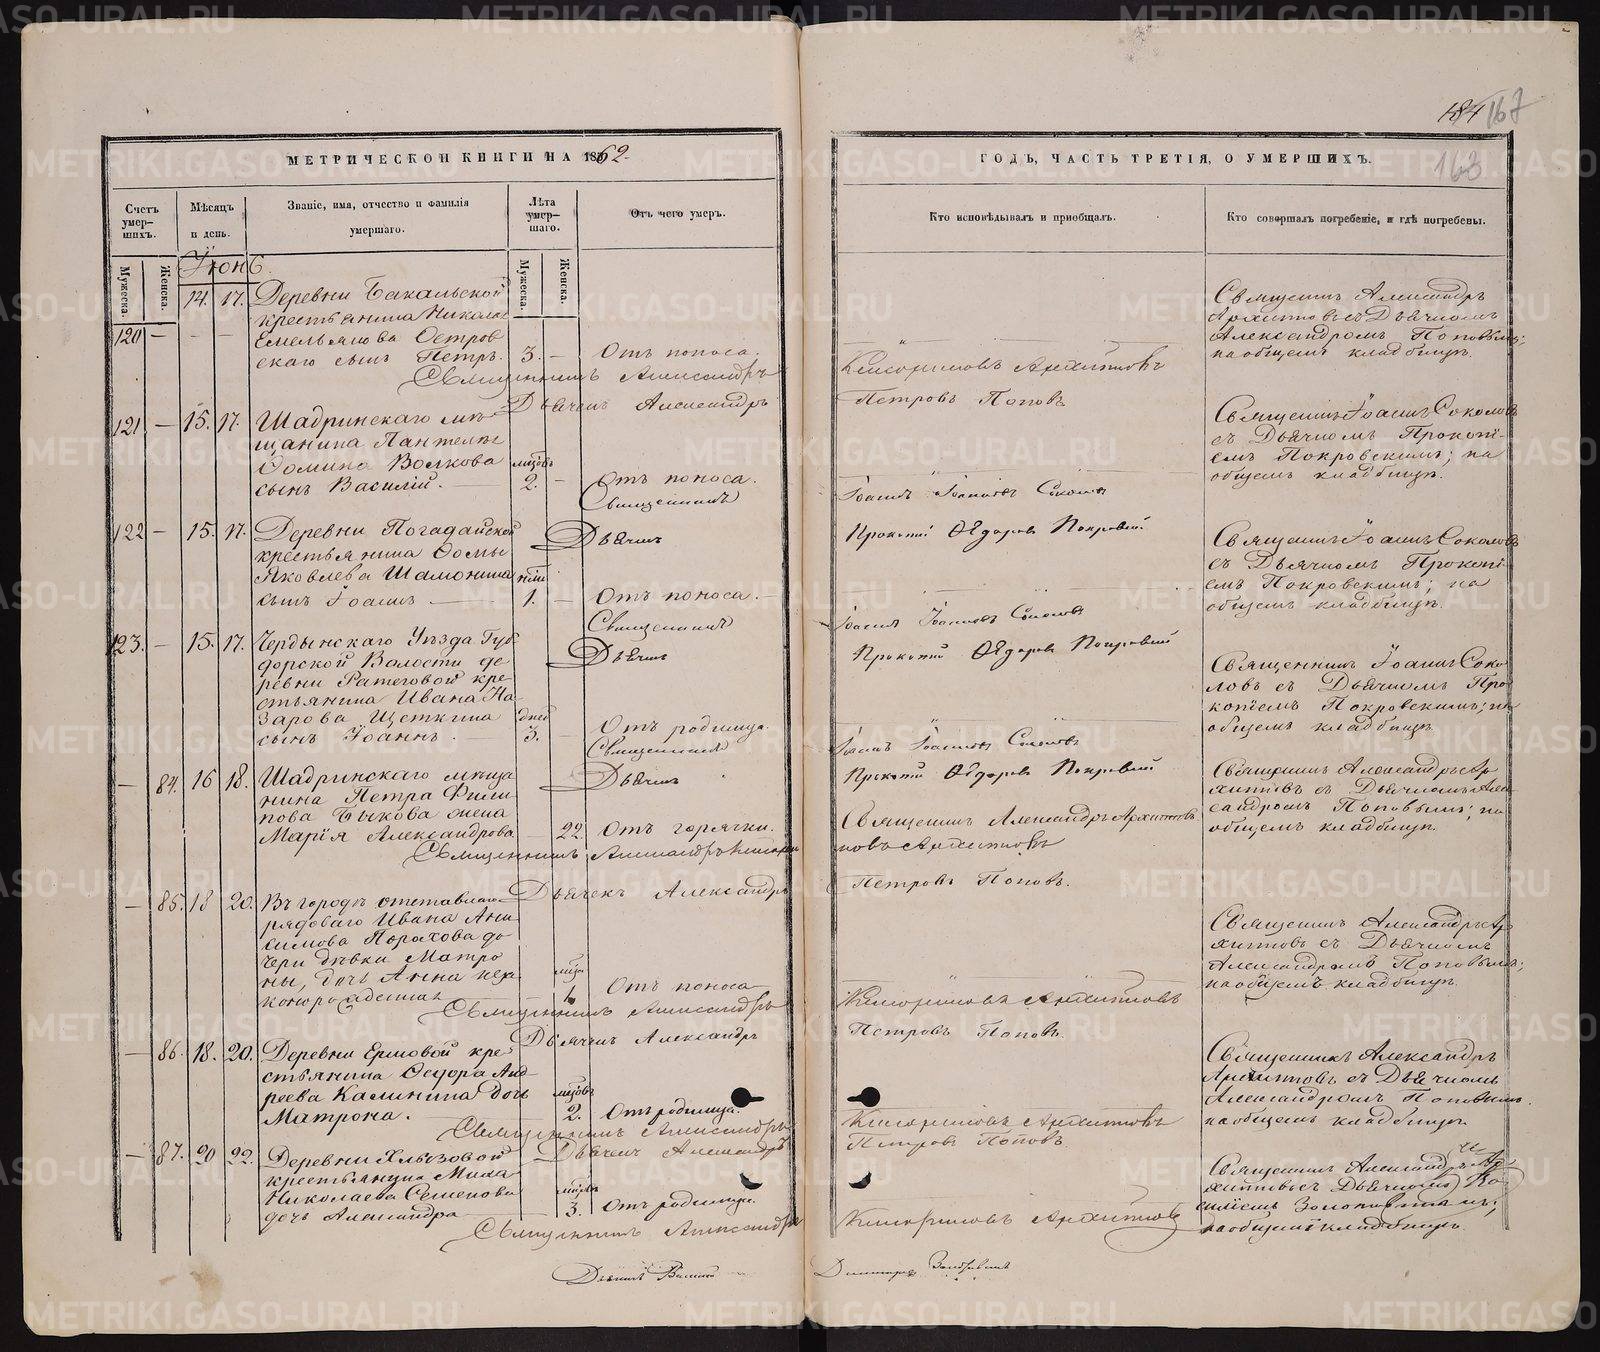 184 167
163
МЕТРИЧЕСКОЙ КНИГИ НА 1862.
ГОДЪ, ЧАСТЬ ТРЕТІЯ, О УМЕРШИХЪ.
Счетъ умер-шихъ.
Мѣсяцъ и день.
Званіе, имя, отчество и фамилія умершаго.
Лѣта умер-шаго.
Отъ чего умеръ.
Кто исповѣдывалъ и пріобщалъ.
Кто совершалъ погребеніе, и гдѣ погребены.
Мужеска.
Женска.
Мужеска.
Женска.
Іюнь.
120 — 14. 17. Деревни Бакальской
крестьянина Никола
Емельянова Остров
скаго сынъ Петръ. 3. — Отъ поноса.
Священникъ Александръ
Архиповъ
Дьячекъ Александръ
Петровъ Поповъ
Священникъ Александръ
съ Дьячкомъ
Александромъ Поповымъ;
на общемъ кладбищѣ.
121 — 15. 17. Шадринскаго мѣ-
щанина Пантелея
Фомина Волкова
сынъ Василій. 2. — Отъ поноса.
Священникъ
Іоаннъ Іоанновъ Соколовъ
Дьячекъ
Прокопій Ѳедоровъ Покровскій
Священникъ Іоаннъ Соколовъ
съ Дьячкомъ Прокопі-
емъ Покровскимъ; на
общемъ кладбищѣ.
122 — 15. 17. Деревни Погадайской
крестьянина Фомы
Яковлева Шамонина
сынъ Іоаннъ 1. — Отъ поноса.
Священникъ
Іоаннъ Іоанновъ Соколовъ
Дьячекъ
Прокопій Ѳедоровъ Покровскій
Священникъ Іоаннъ Соколовъ
съ Дьячкомъ Прокопі-
емъ Покровскимъ; на
общемъ кладбищѣ.
123. — 15. 17. Чердынскаго Уѣзда
Волости де
ревни кре
стьянина Ивана На
зарова Щеткина дней
сынъ Іоаннъ. 3. — Отъ родимца.
Священникъ
Іоаннъ Іоанновъ Соколовъ
Дьячекъ
Прокопій Ѳедоровъ Покровскій
Священникъ Іоаннъ Соко
ловъ съ Дьячкомъ Про
копіемъ Покровскимъ; на
общемъ кладбищѣ.
— 84. 16 18. Шадринскаго мѣща
нина Петра Фили
пова Быкова жена
Марія Александрова — 22 Отъ горячки.
Священникъ Александръ Архиповъ
Священникъ Александръ
Архиповъ
Дьячекъ Александръ
Петровъ Поповъ.
Священникъ Александръ Ар
хиповъ съ Дьячкомъ Алек
сандромъ Поповымъ; на
общемъ кладбищѣ.
— 85. 18 20. Въ городѣ отставнаго
рядоваго Ивана Ани
симова Порахова до
чери дѣвки Матро
ны, дочь Анна
Отъ поноса
Священникъ Александръ
Архиповъ
Дьячекъ Александръ
Петровъ Поповъ.
Священникъ Александръ Ар
хиповъ съ Дьячкомъ
Александромъ Поповымъ;
на общемъ кладбищѣ.
— 86. 18. 20. Деревни Ершовой кре
стьянина Ѳедора Анд
реева Калинина дочь
Матрона. 2. Отъ родимца.
Священникъ Александръ
Архиповъ
Дьячекъ Александръ
Петровъ Поповъ.
Священникъ Александръ
Архиповъ съ Дьячкомъ
Александромъ Поповымъ.
на общемъ кладбищѣ.
— 87. 20 22. Деревни Хлызовой
крестьянина
Николаева Семенова
дочь Александра 3. Отъ родимца.
Священникъ Александръ
Архиповъ
Священникъ Александръ Ар
хиповъ съ Дьячкомъ
на общемъ кладбищѣ.
METRIKI.GASO-URAL.RU